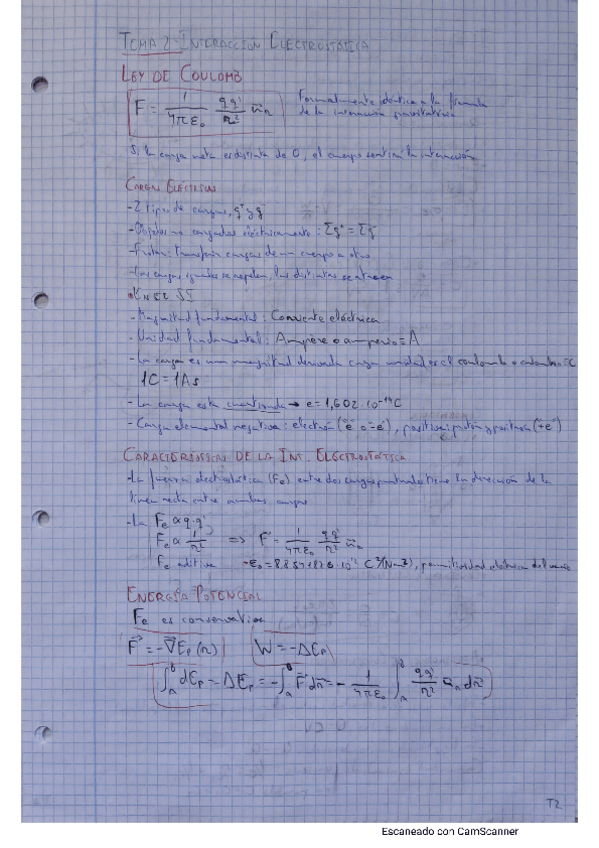 TEMA 2: INTERACCIÓN ELECTROSTÁTICA
LEY DE COULOMB
F = 1/4πε₀ qq'/r² u⃗ᵣ
Formalmente idéntica a la fórmula
de la interacción gravitatoria
Si la carga neta es distinta de 0, el cuerpo sentirá la interacción
CARGAS ELÉCTRICAS
-2 tipos de cargas, q⁺ y q⁻
-Objetos no cargados eléctricamente: Σq⁺ = Σq⁻
-Frotar: transferir cargas de un cuerpo a otro
-Las cargas iguales se repelen, las distintas se atraen
EN EL SI
-Magnitud fundamental: Corriente eléctrica
-Unidad fundamental: Ampère o amperio = A
-La carga es una magnitud derivada cuya unidad es el coulomb o culombio = C
1C = 1A s
-La carga está cuantizada → e = 1,602·10⁻¹⁹C
-Carga elemental negativa: electrón (e⁻ o -e), positiva: protón y positrón (+e)
CARACTERÍSTICAS DE LA INT. ELECTROSTÁTICA
-La fuerza electrostática (Fe) entre dos cargas puntuales tiene la dirección de la
línea recta entre ambas cargas
-La Fe ∝ q·q'
Fe ∝ 1/r² ⇒ F⃗ = 1/4πε₀ qq'/r² u⃗ᵣ
Fe aditiva -ε₀ = 8,8541878·10⁻¹² C²/(N·m²), permitividad eléctrica del vacío
ENERGÍA POTENCIAL
Fe es conservativa
F⃗ = -∇⃗Eₚ(r) W = -ΔEₚ
∫ₐᴮ dEₚ = ΔEₚ = -∫ₐᴮ F⃗ dr⃗ = - 1/4πε₀ ∫ₐᴮ qq'/r² u⃗ᵣ dr⃗
T2
Escaneado con CamScanner